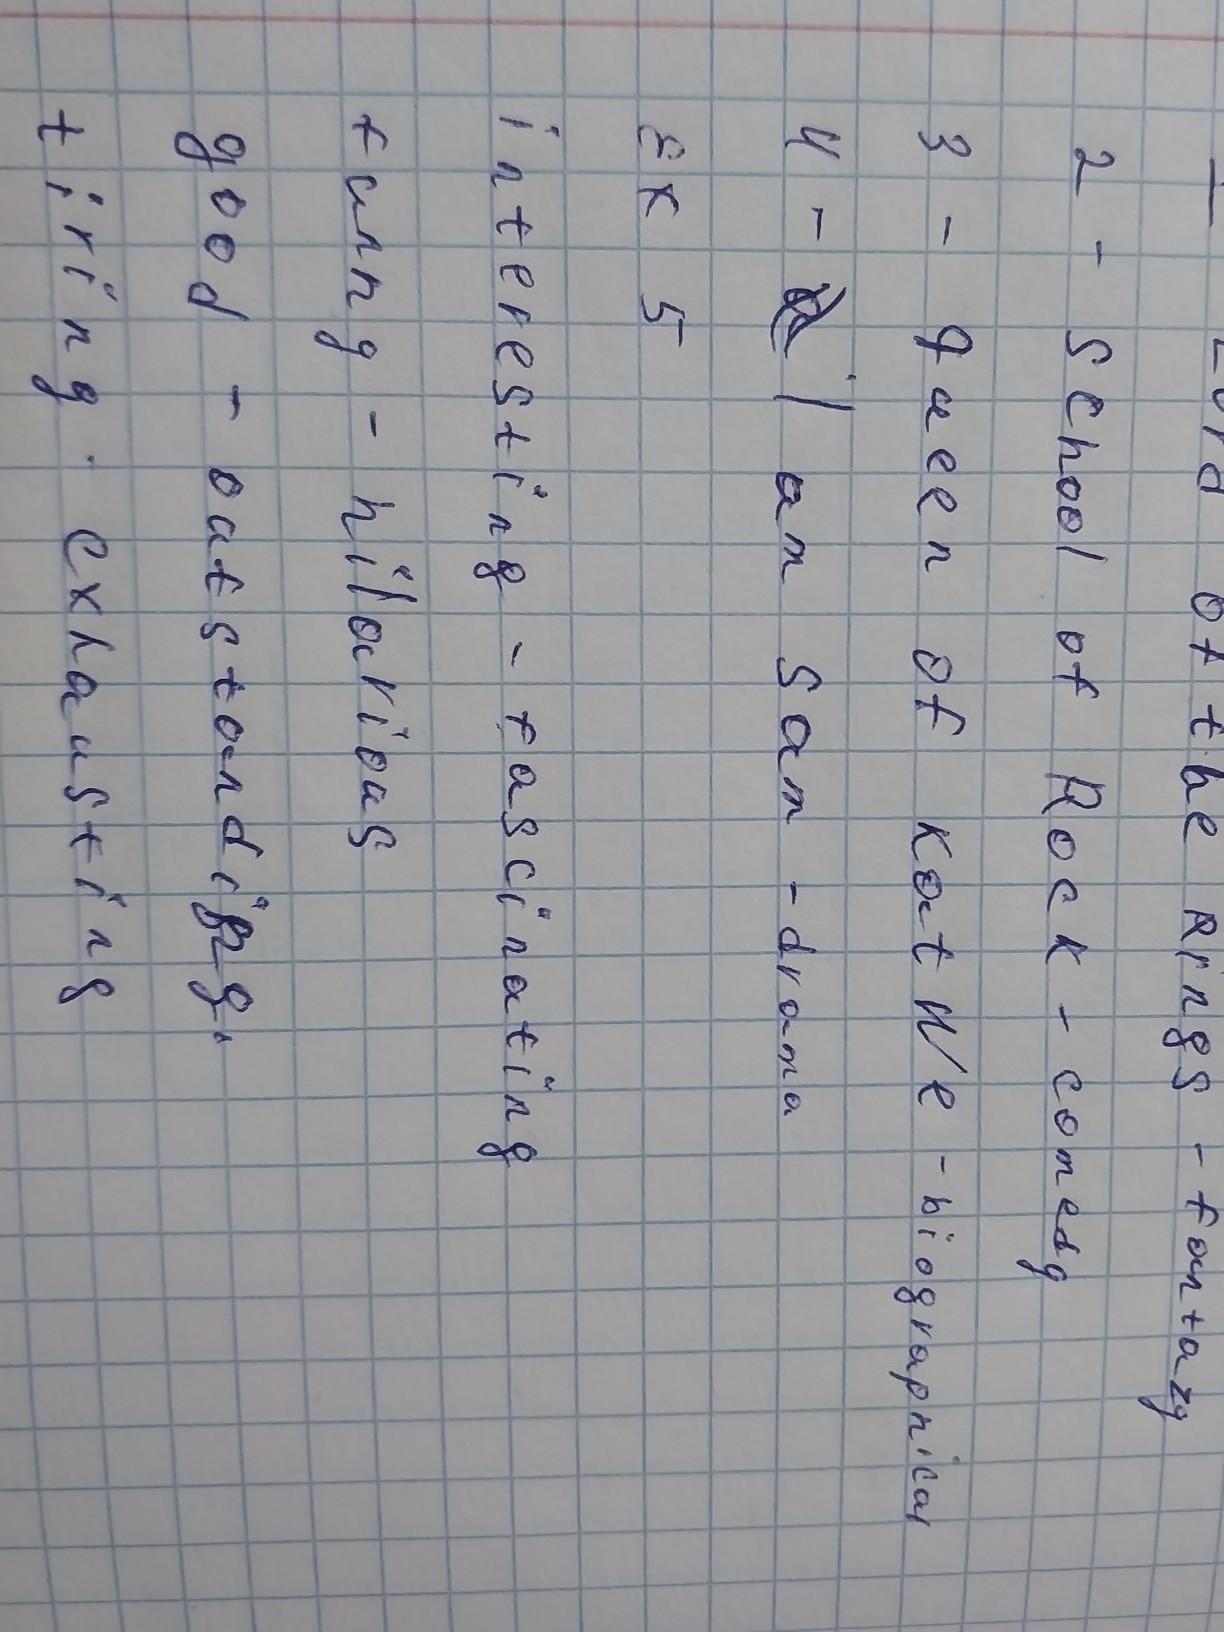 1 - Lord of the Rings - fantazy
2 - School of Rock - comedy
3 - queen of Katwe - biographical
4 - i am sam - drama
Ex 5
interesting - fascinating
funny - hilarious
good - outstanding.
tiring. exhausting